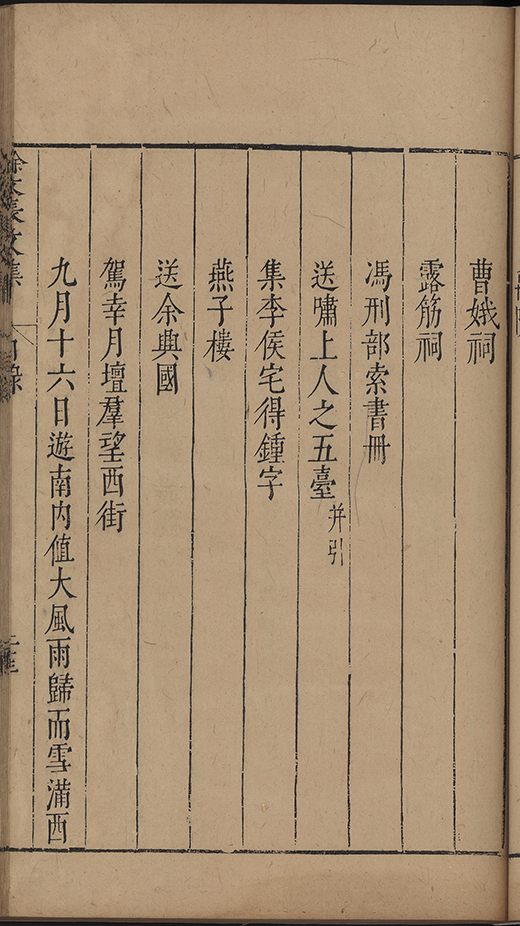 曹娥祠
露筋祠
馮刑部索書冊
送嘯上人之五臺并引
集李侯宅得鍾字
燕子樓
送余典國
駕幸月壇羣望西街
九月十六日遊南内值大風雨歸而雪滿西
徐文長文集
目錄